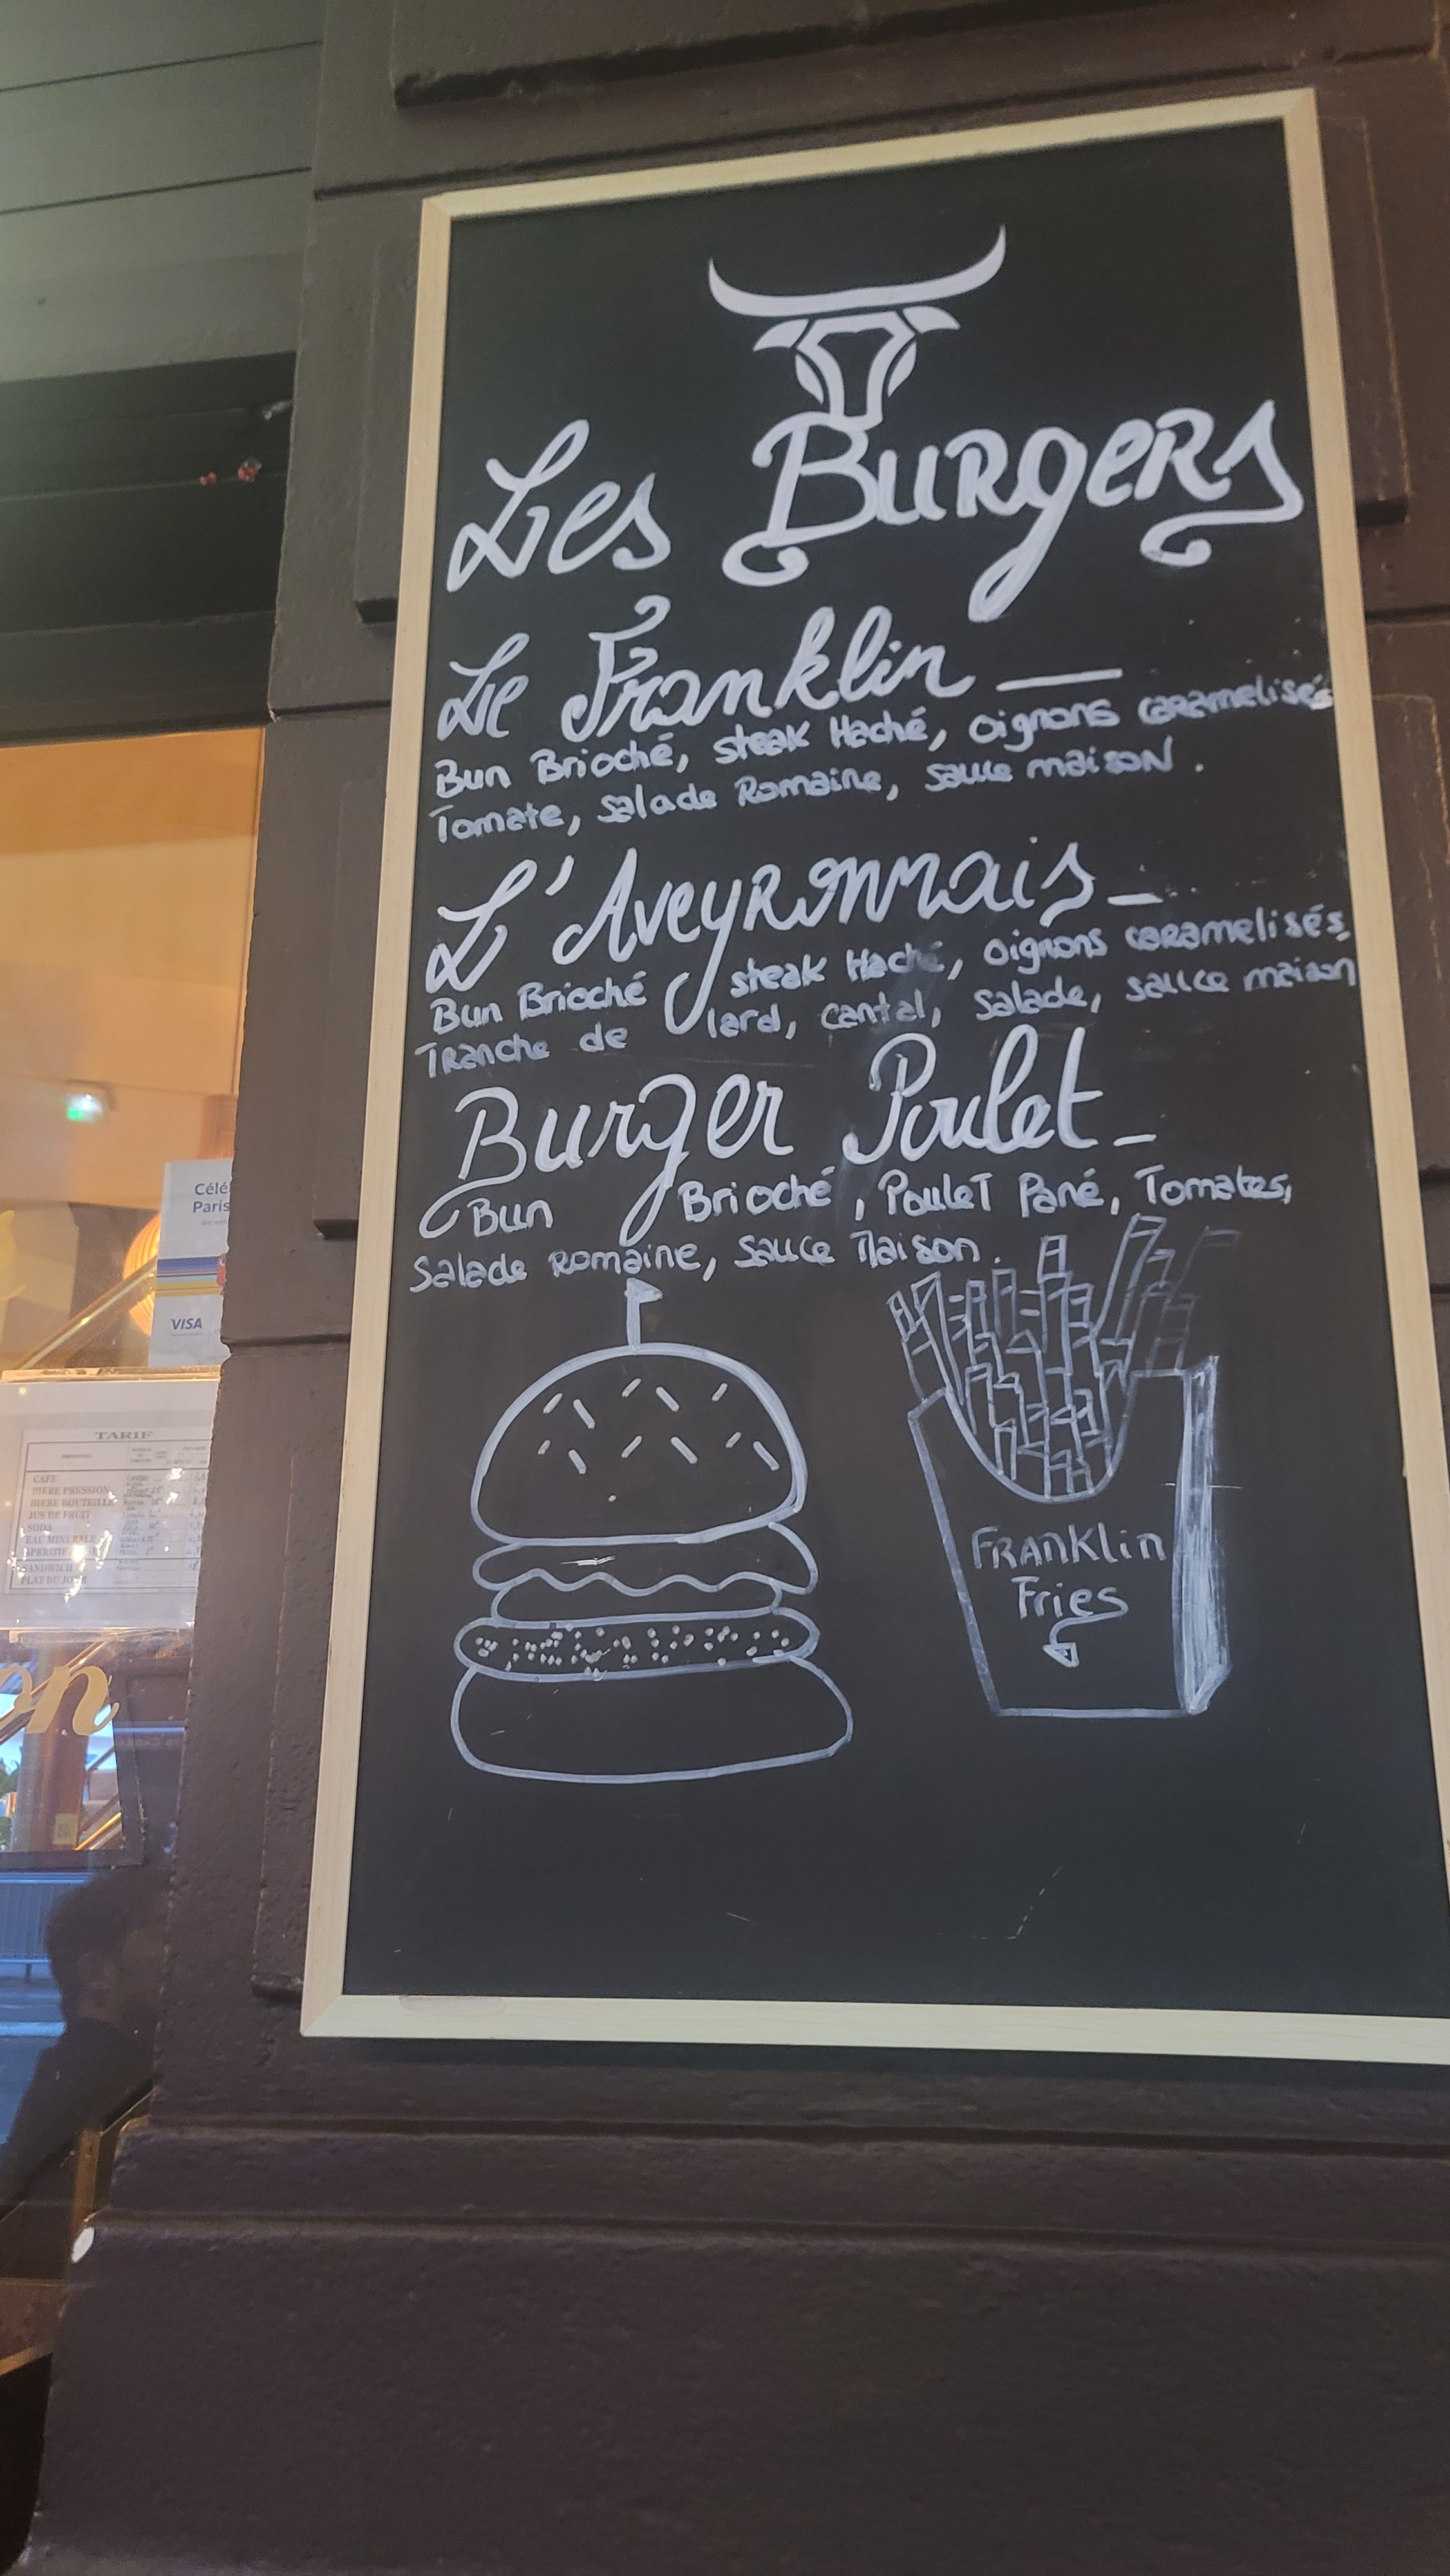 Les Burgers
Le Franklin
Bun Brioché, steak Haché, oignons caramelisés
Tomate, salade Romaine, sauce maison.
L'Aveyronnais
Bun Brioché, steak Haché, oignons caramelisés,
Tranche de lard, cantal, salade, sauce maison
Burger Poulet
Bun Brioché, Poulet Pané, Tomates,
Salade Romaine, Sauce Maison.
FRANKlin
Fries
Célé
Paris
VISA
TARIF
CAFE
BIERE PRESSION
BIERE BOUTEILLE
JUS DE FRUIT
SODA
EAU MINERALE
SANDWICH
PLAT DU JOUR
on